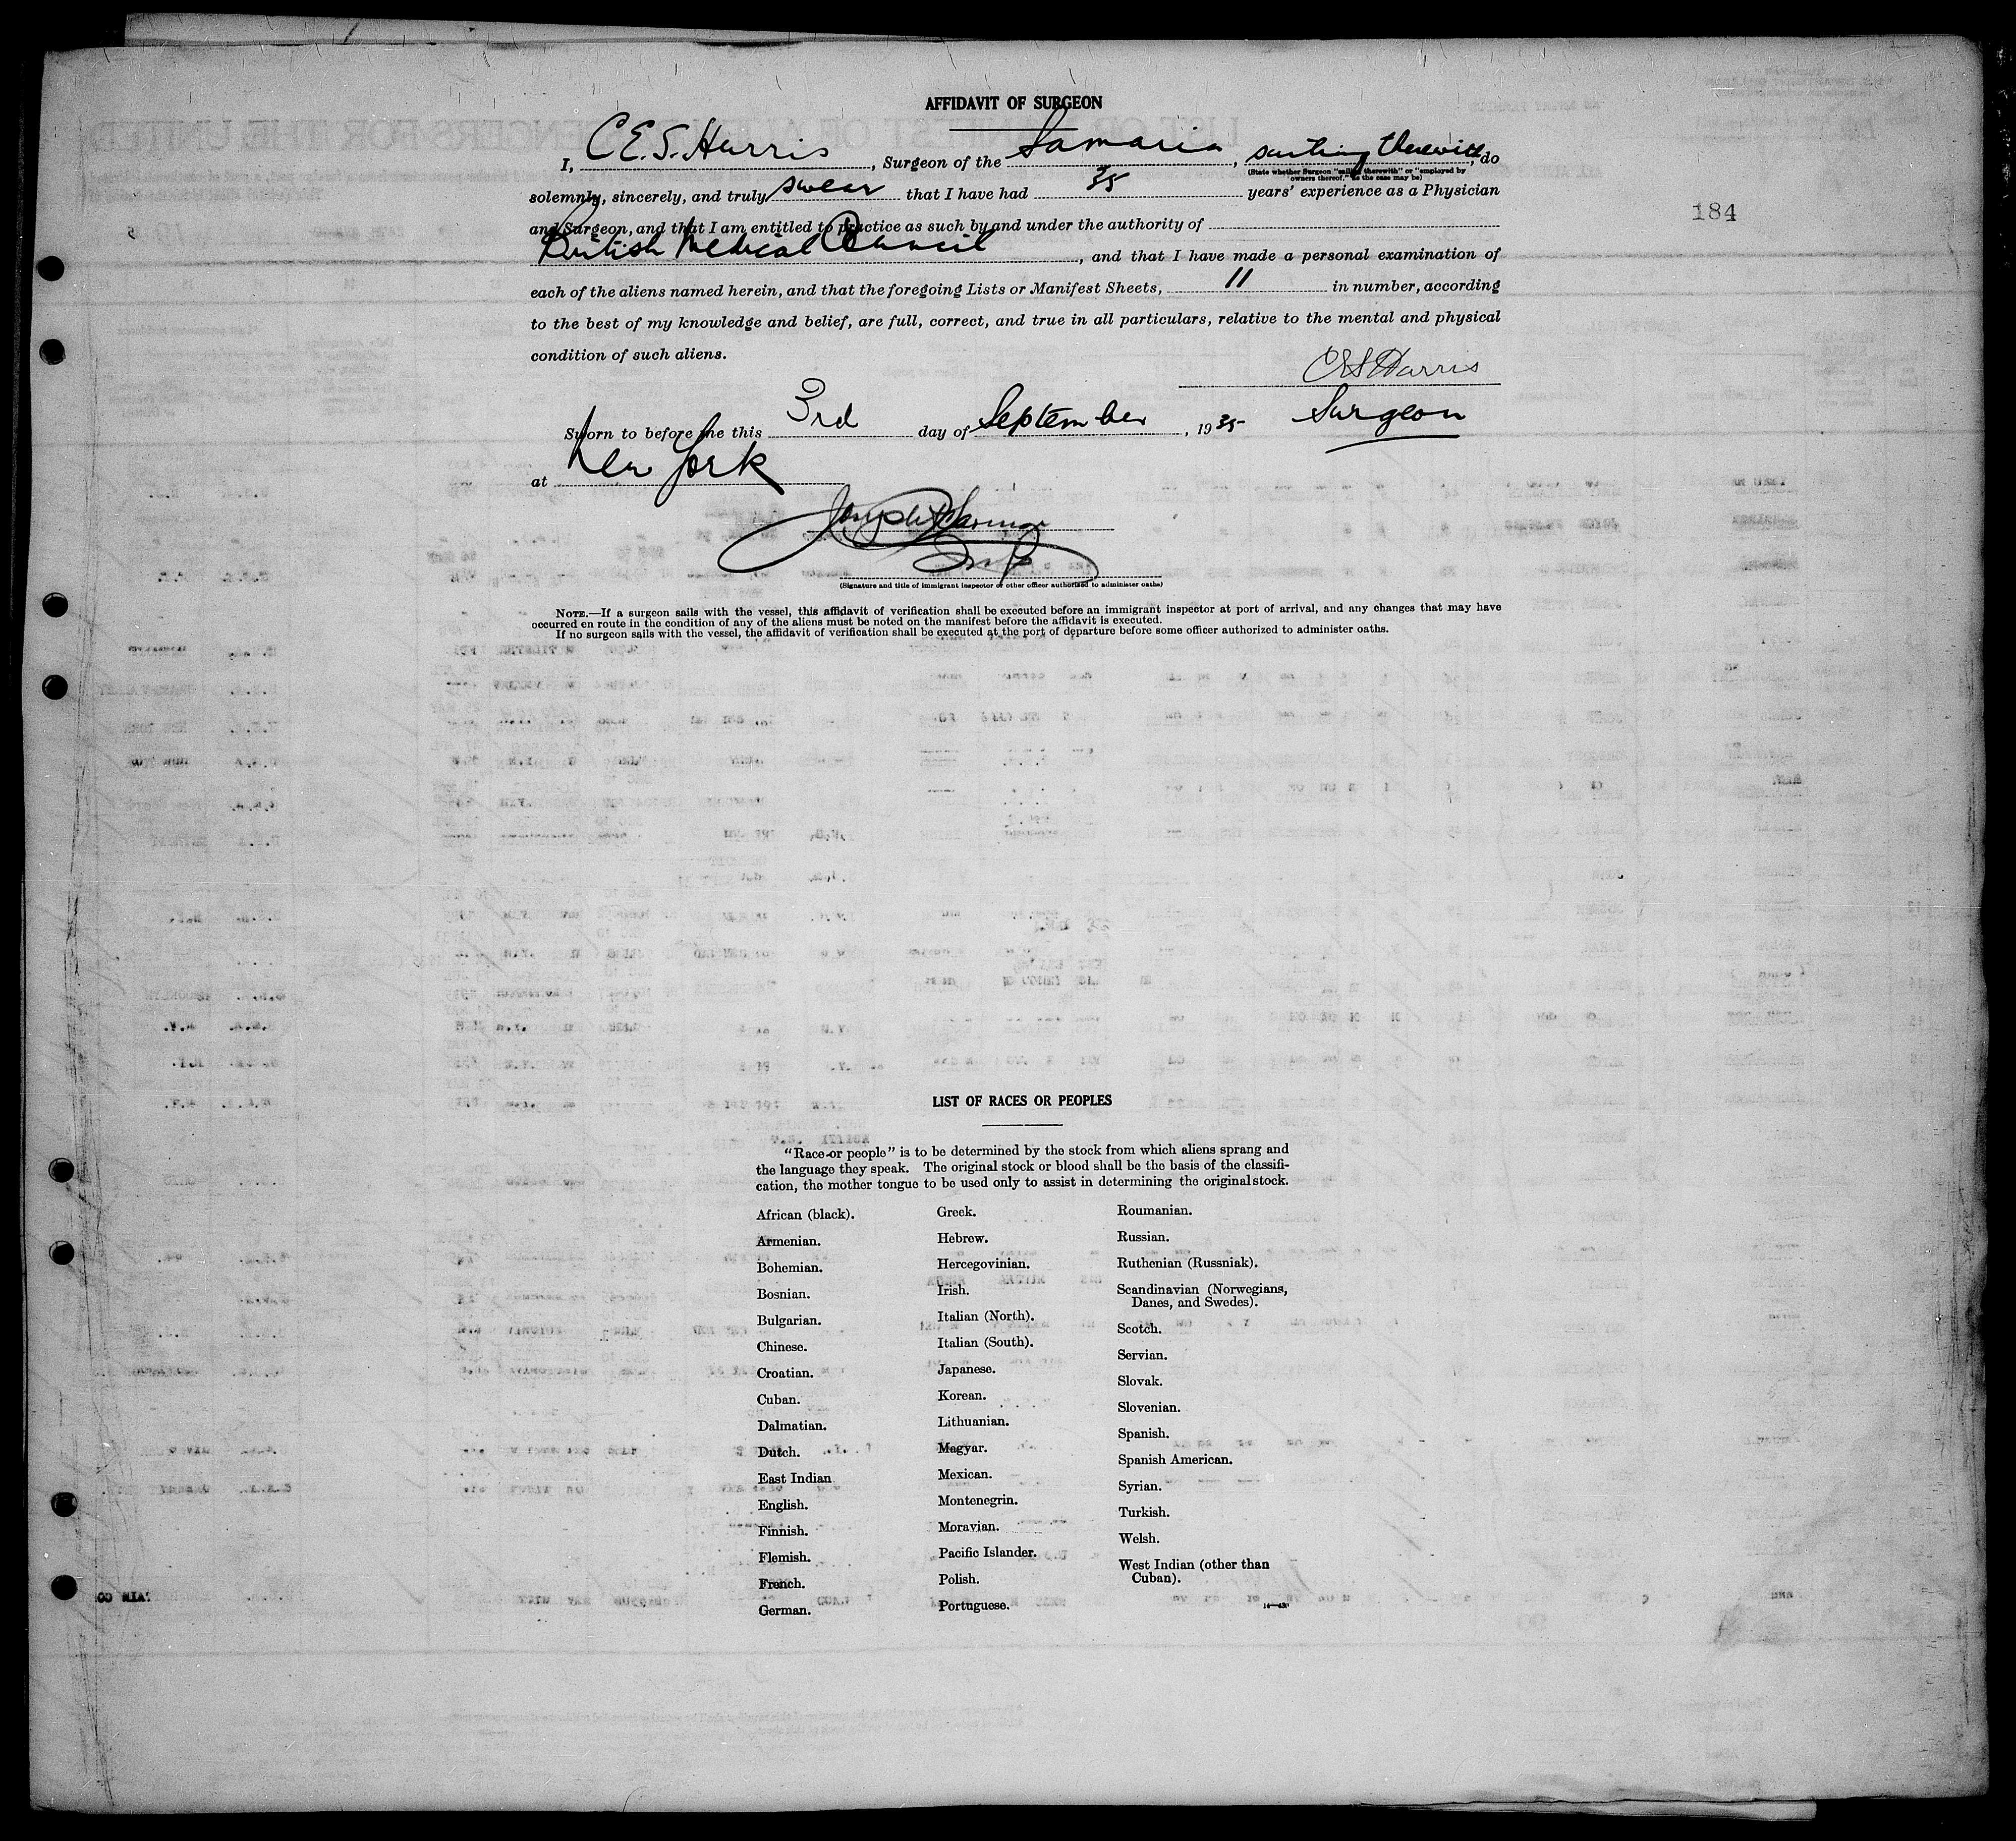 AFFIDAVIT OF SURGEON
I, C.E.S. Harris, Surgeon of the Samaria, sailing therewith, do
(State whether Surgeon "sailing therewith" or "employed by
owners thereof," as the case may be)
solemnly, sincerely, and truly swear that I have had 35 years' experience as a Physician
184
and Surgeon, and that I am entitled to practice as such by and under the authority of
British Medical Council, and that I have made a personal examination of
each of the aliens named herein, and that the foregoing Lists or Manifest Sheets, 11 in number, according
to the best of my knowledge and belief, are full, correct, and true in all particulars, relative to the mental and physical
condition of such aliens.
CES Harris
Sworn to before me this 3rd day of September, 1935 Surgeon
at New York
(Signature and title of immigrant inspector or other officer authorized to administer oaths)
NOTE.—If a surgeon sails with the vessel, this affidavit of verification shall be executed before an immigrant inspector at port of arrival, and any changes that may have
occurred en route in the condition of any of the aliens must be noted on the manifest before the affidavit is executed.
If no surgeon sails with the vessel, the affidavit of verification shall be executed at the port of departure before some officer authorized to administer oaths.
LIST OF RACES OR PEOPLES
"Race or people" is to be determined by the stock from which aliens sprang and
the language they speak. The original stock or blood shall be the basis of the classifi-
cation, the mother tongue to be used only to assist in determining the original stock.
African (black).
Armenian.
Bohemian.
Bosnian.
Bulgarian.
Chinese.
Croatian.
Cuban.
Dalmatian.
Dutch.
East Indian
English.
Finnish.
Flemish.
French.
German.
Greek.
Hebrew.
Hercegovinian.
Irish.
Italian (North).
Italian (South).
Japanese.
Korean.
Lithuanian.
Magyar.
Mexican.
Montenegrin.
Moravian.
Pacific Islander.
Polish.
Portuguese.
Roumanian.
Russian.
Ruthenian (Russniak).
Scandinavian (Norwegians,
Danes, and Swedes).
Scotch.
Servian.
Slovak.
Slovenian.
Spanish.
Spanish American.
Syrian.
Turkish.
Welsh.
West Indian (other than
Cuban).